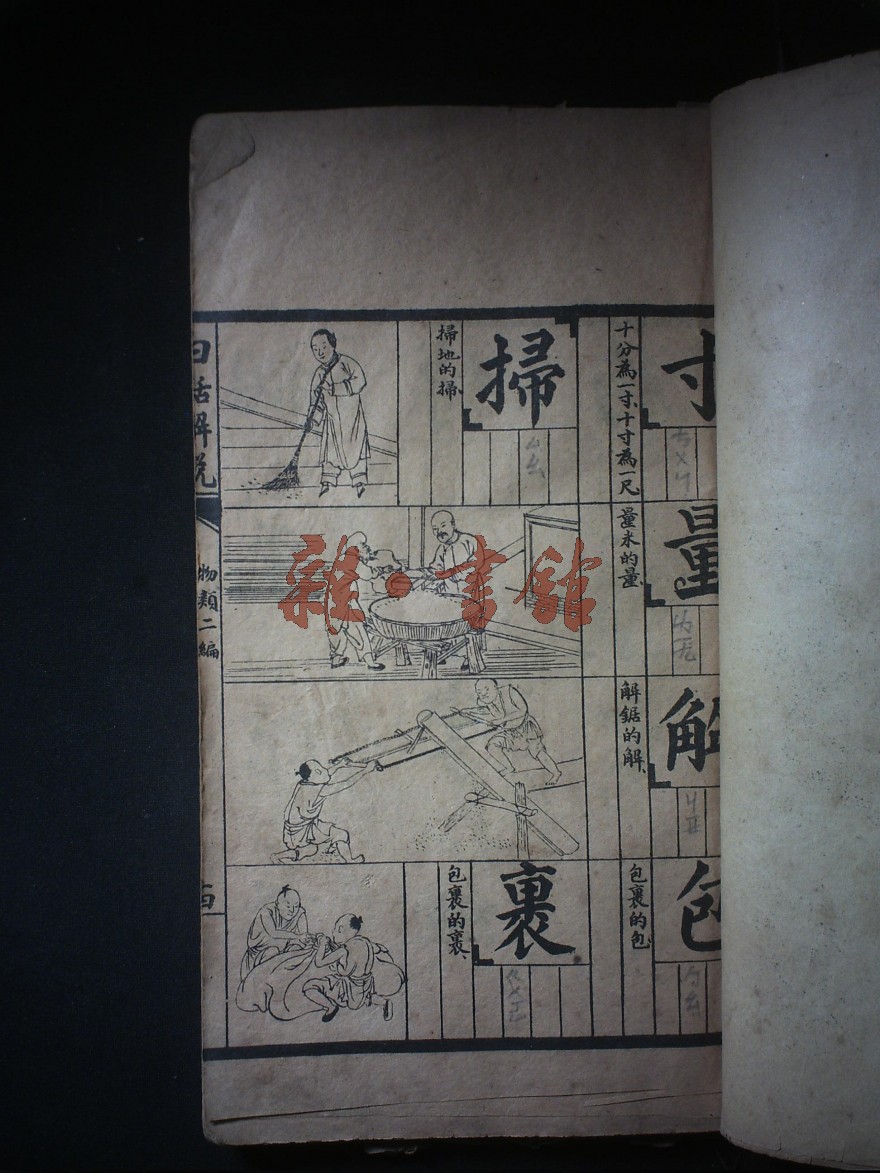 寸
十分為一寸、十寸為一尺
掃
掃地的掃、
量
量米的量
解
解鋸的解、
包
包裹的包
裹
包裹的裹、
白話解說
物類二編
雜·書館
ㄙㄠ
ㄘㄨㄣ
ㄌㄧㄤ
ㄐㄧㄝ
ㄅㄠ
ㄍㄨㄛ